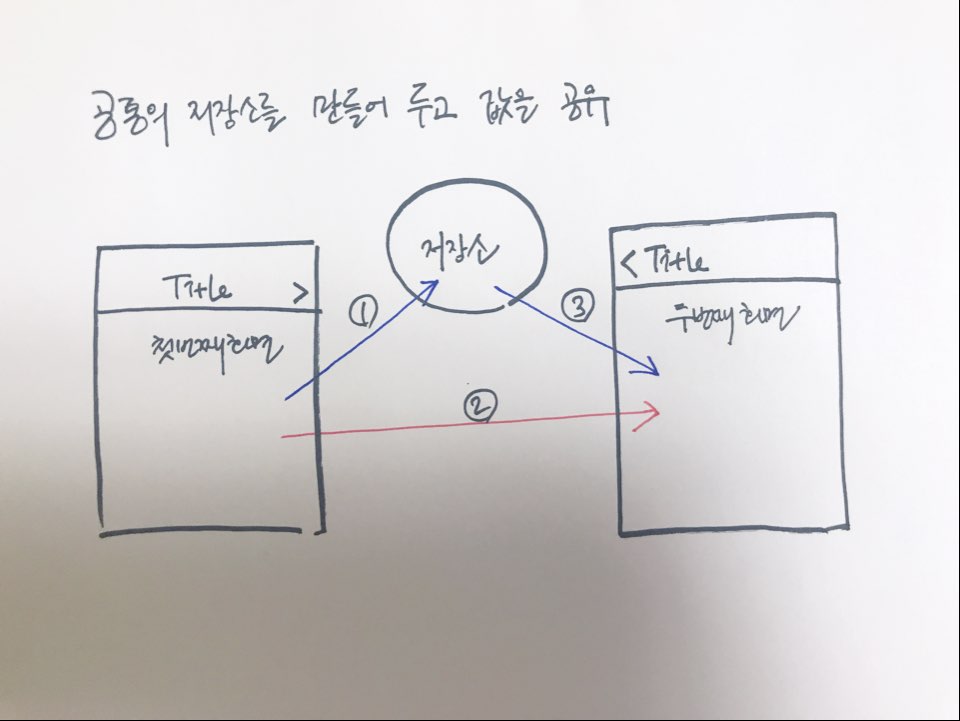 공통의 저장소를 만들어 두고 값을 공유
저장소
Title >
첫번째화면
①
②
③
< Title
두번째화면